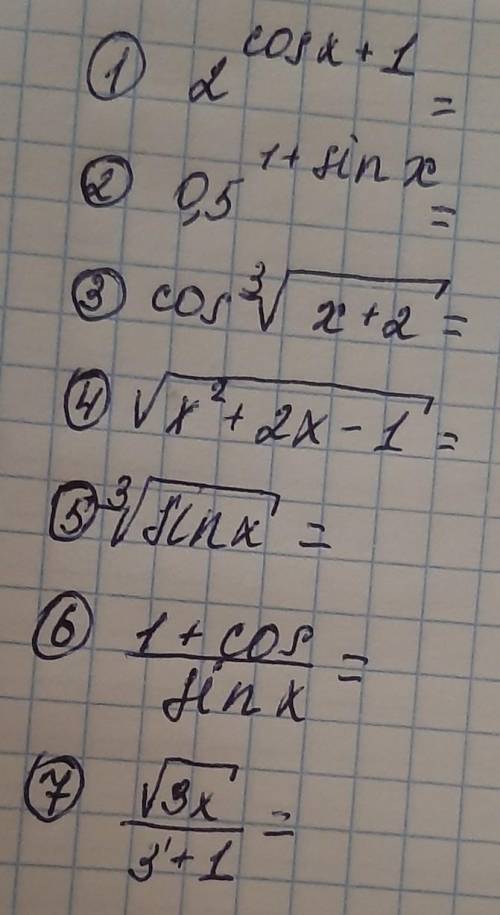 ① 2^(cosx + 1) =
② 0,5^(1 + sin x) =
③ cos ∛(x + 2) =
④ √(x² + 2x - 1) =
⑤ ∛(sin x) =
⑥ (1 + cos)/(sin x) =
⑦ √(3x)/(3' + 1) =